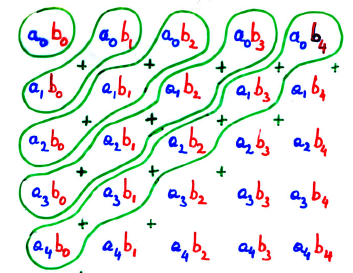 a₀b₀ a₀b₁ a₀b₂ a₀b₃ a₀b₄
+ + + + +
a₁b₀ a₁b₁ a₁b₂ a₁b₃ a₁b₄
+ + + +
a₂b₀ a₂b₁ a₂b₂ a₂b₃ a₂b₄
+ + +
a₃b₀ a₃b₁ a₃b₂ a₃b₃ a₃b₄
+ +
a₄b₀ a₄b₁ a₄b₂ a₄b₃ a₄b₄